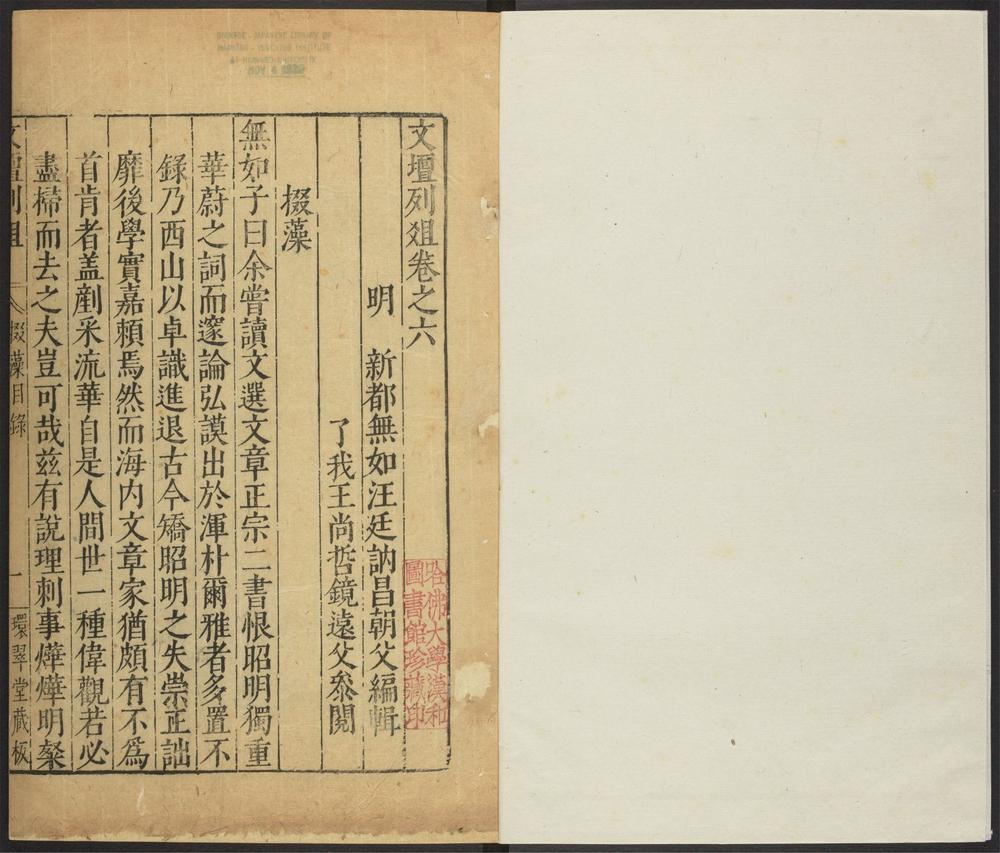 文壇列爼卷之六
明　新都無如汪廷訥昌朝父編輯
了我王尚哲鏡遠父叅閱
掇藻
無如子曰余嘗讀文選文章正宗二書恨昭明獨重
華蔚之詞而邃論弘謨出於渾朴爾雅者多置不
錄乃西山以卓識進退古今矯昭明之失崇正詘
靡後學實嘉賴焉然而海内文章家猶頗有不爲
首肯者盖剷采流華自是人間世一種偉觀若必
盡㨹而去之夫豈可哉茲有說理刺事燁燁明粲
文壇列爼　掇藻目錄　一　環翠堂藏板
哈佛大學漢和
圖書館珍藏印
CHINESE - JAPANESE LIBRARY OF
HARVARD - YENCHING INSTITUTE
AT HARVARD UNIVERSITY